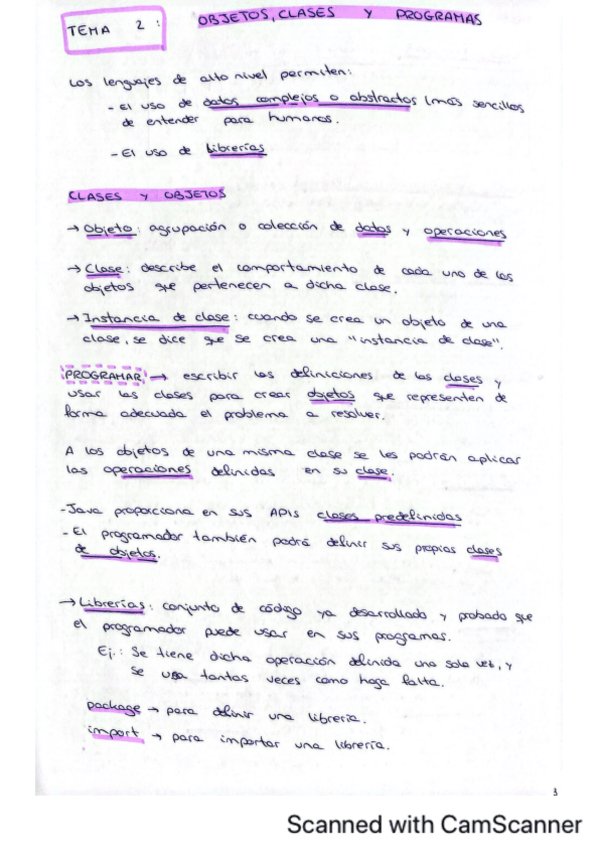 TEMA 2: OBJETOS, CLASES Y PROGRAMAS
Los lenguajes de alto nivel permiten:
- El uso de datos complejos o abstractos (más sencillos
de entender para humanos.
- El uso de librerías
CLASES Y OBJETOS
→ Objeto: agrupación o colección de datos y operaciones
→ Clase: describe el comportamiento de cada uno de los
objetos que pertenecen a dicha clase.
→ Instancia de clase: cuando se crea un objeto de una
clase, se dice que se crea una "instancia de clase".
PROGRAMAR → escribir las definiciones de las clases y
usar las clases para crear objetos que representen de
forma adecuada el problema a resolver.
A los objetos de una misma clase se les podrán aplicar
las operaciones definidas en su clase.
- Java proporciona en sus APIS clases predefinidas
- El programador también podrá definir sus propias clases
de objetos.
→ Librerías: conjunto de código ya desarrollado y probado que
el programador puede usar en sus programas.
Ej.: Se tiene dicha operación definida una sola vez, y
se usa tantas veces como haga falta.
package → para definir una librería.
import → para importar una librería.
3
Scanned with CamScanner